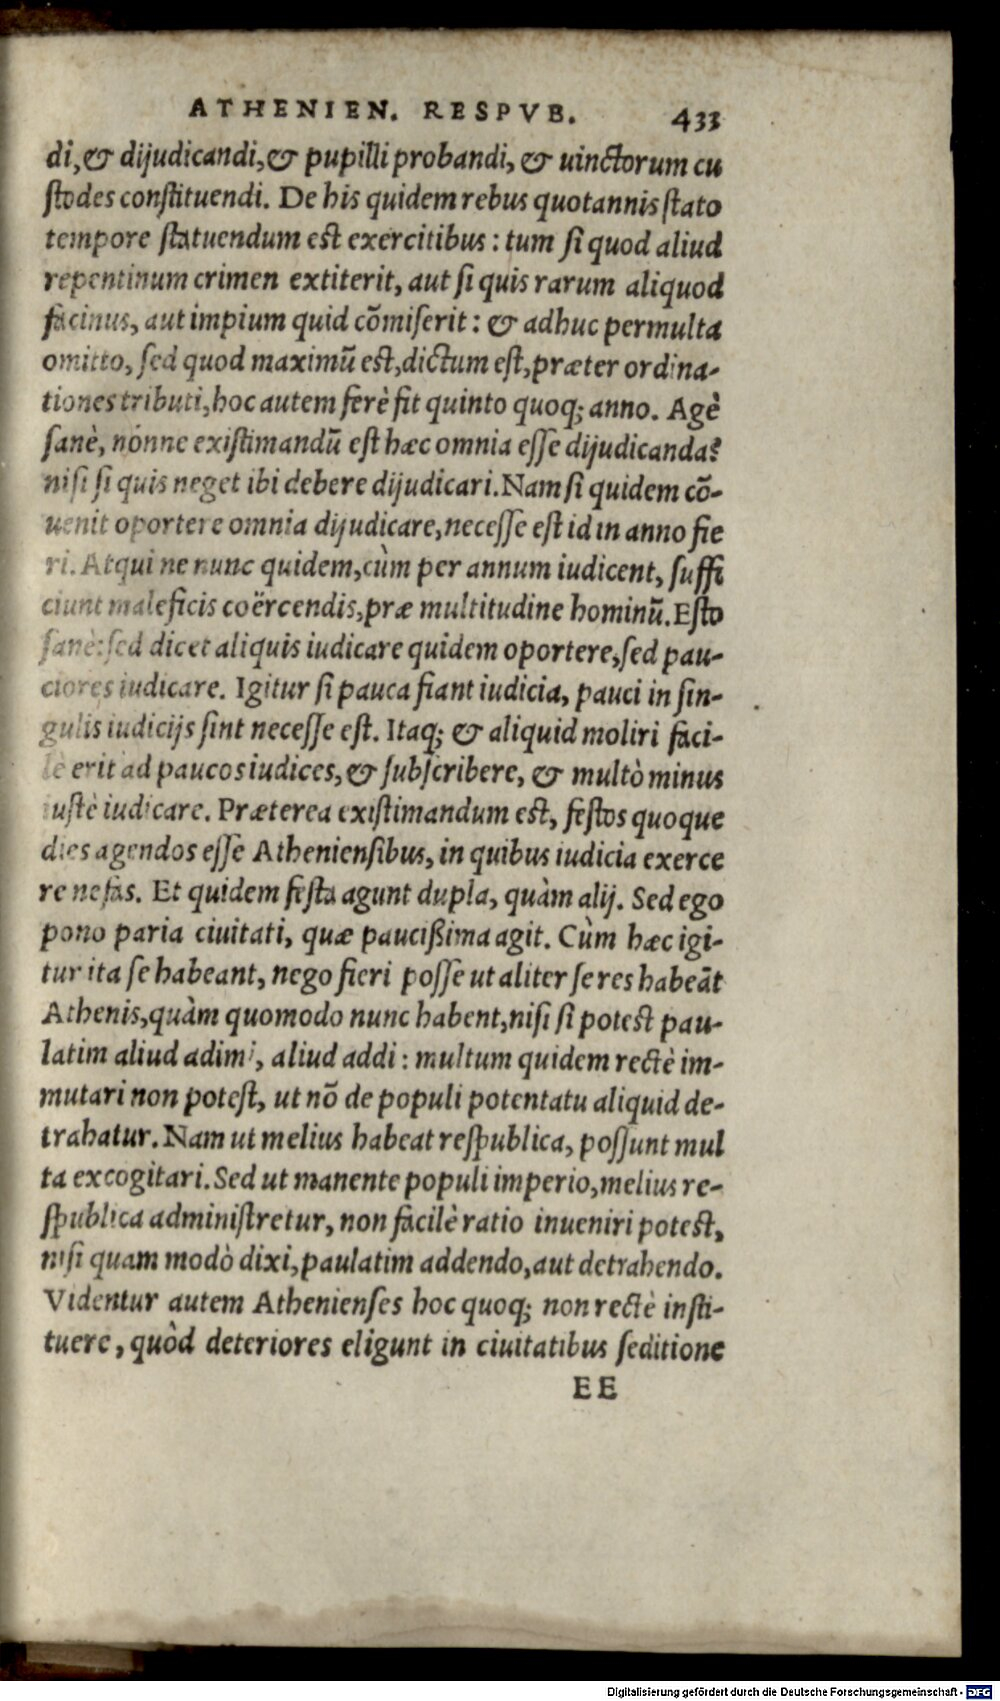 ATHENIEN. RESPVB. 433
di, & dijudicandi, & pupilli probandi, & uinctorum cu
stodes constituendi. De his quidem rebus quotannis stato
tempore statuendum est exercitibus : tum si quod aliud
repentinum crimen extiterit, aut si quis rarum aliquod
facinus, aut impium quid cõmiserit : & adhuc permulta
omitto, sed quod maximũ est, dictum est, præter ordina-
tiones tributi, hoc autem ferè fit quinto quoq; anno. Agè
sanè, nónne existimandũ est hæc omnia esse dijudicanda?
nisi si quis neget ibi debere dijudicari. Nam si quidem cõ-
uenit oportere omnia dijudicare, necesse est id in anno fie
ri. Atqui ne nunc quidem, cùm per annum iudicent, suffi
ciunt maleficis coërcendis, præ multitudine hominũ. Esto
sanè: sed dicet aliquis iudicare quidem oportere, sed pau-
ciores iudicare. Igitur si pauca fiant iudicia, pauci in sin-
gulis iudicijs sint necesse est. Itaq; & aliquid moliri faci-
lè erit ad paucos iudices, & subscribere, & multò minus
iustè iudicare. Præterea existimandum est, festos quoque
dies agendos esse Atheniensibus, in quibus iudicia exerce
re nefas. Et quidem festa agunt dupla, quàm alij. Sed ego
pono paria ciuitati, quæ paucißima agit. Cùm hæc igi-
tur ita se habeant, nego fieri posse ut aliter se res habeãt
Athenis, quàm quomodo nunc habent, nisi si potest pau-
latim aliud adimi, aliud addi : multum quidem rectè im-
mutari non potest, ut nõ de populi potentatu aliquid de-
trahatur. Nam ut melius habeat respublica, possunt mul
ta excogitari. Sed ut manente populi imperio, melius re-
spublica administretur, non facilè ratio inueniri potest,
nisi quam modò dixi, paulatim addendo, aut detrahendo.
Videntur autem Athenienses hoc quoq; non rectè insti-
tuere, quòd deteriores eligunt in ciuitatibus seditione
EE
Digitalisierung gefördert durch die Deutsche Forschungsgemeinschaft - DFG